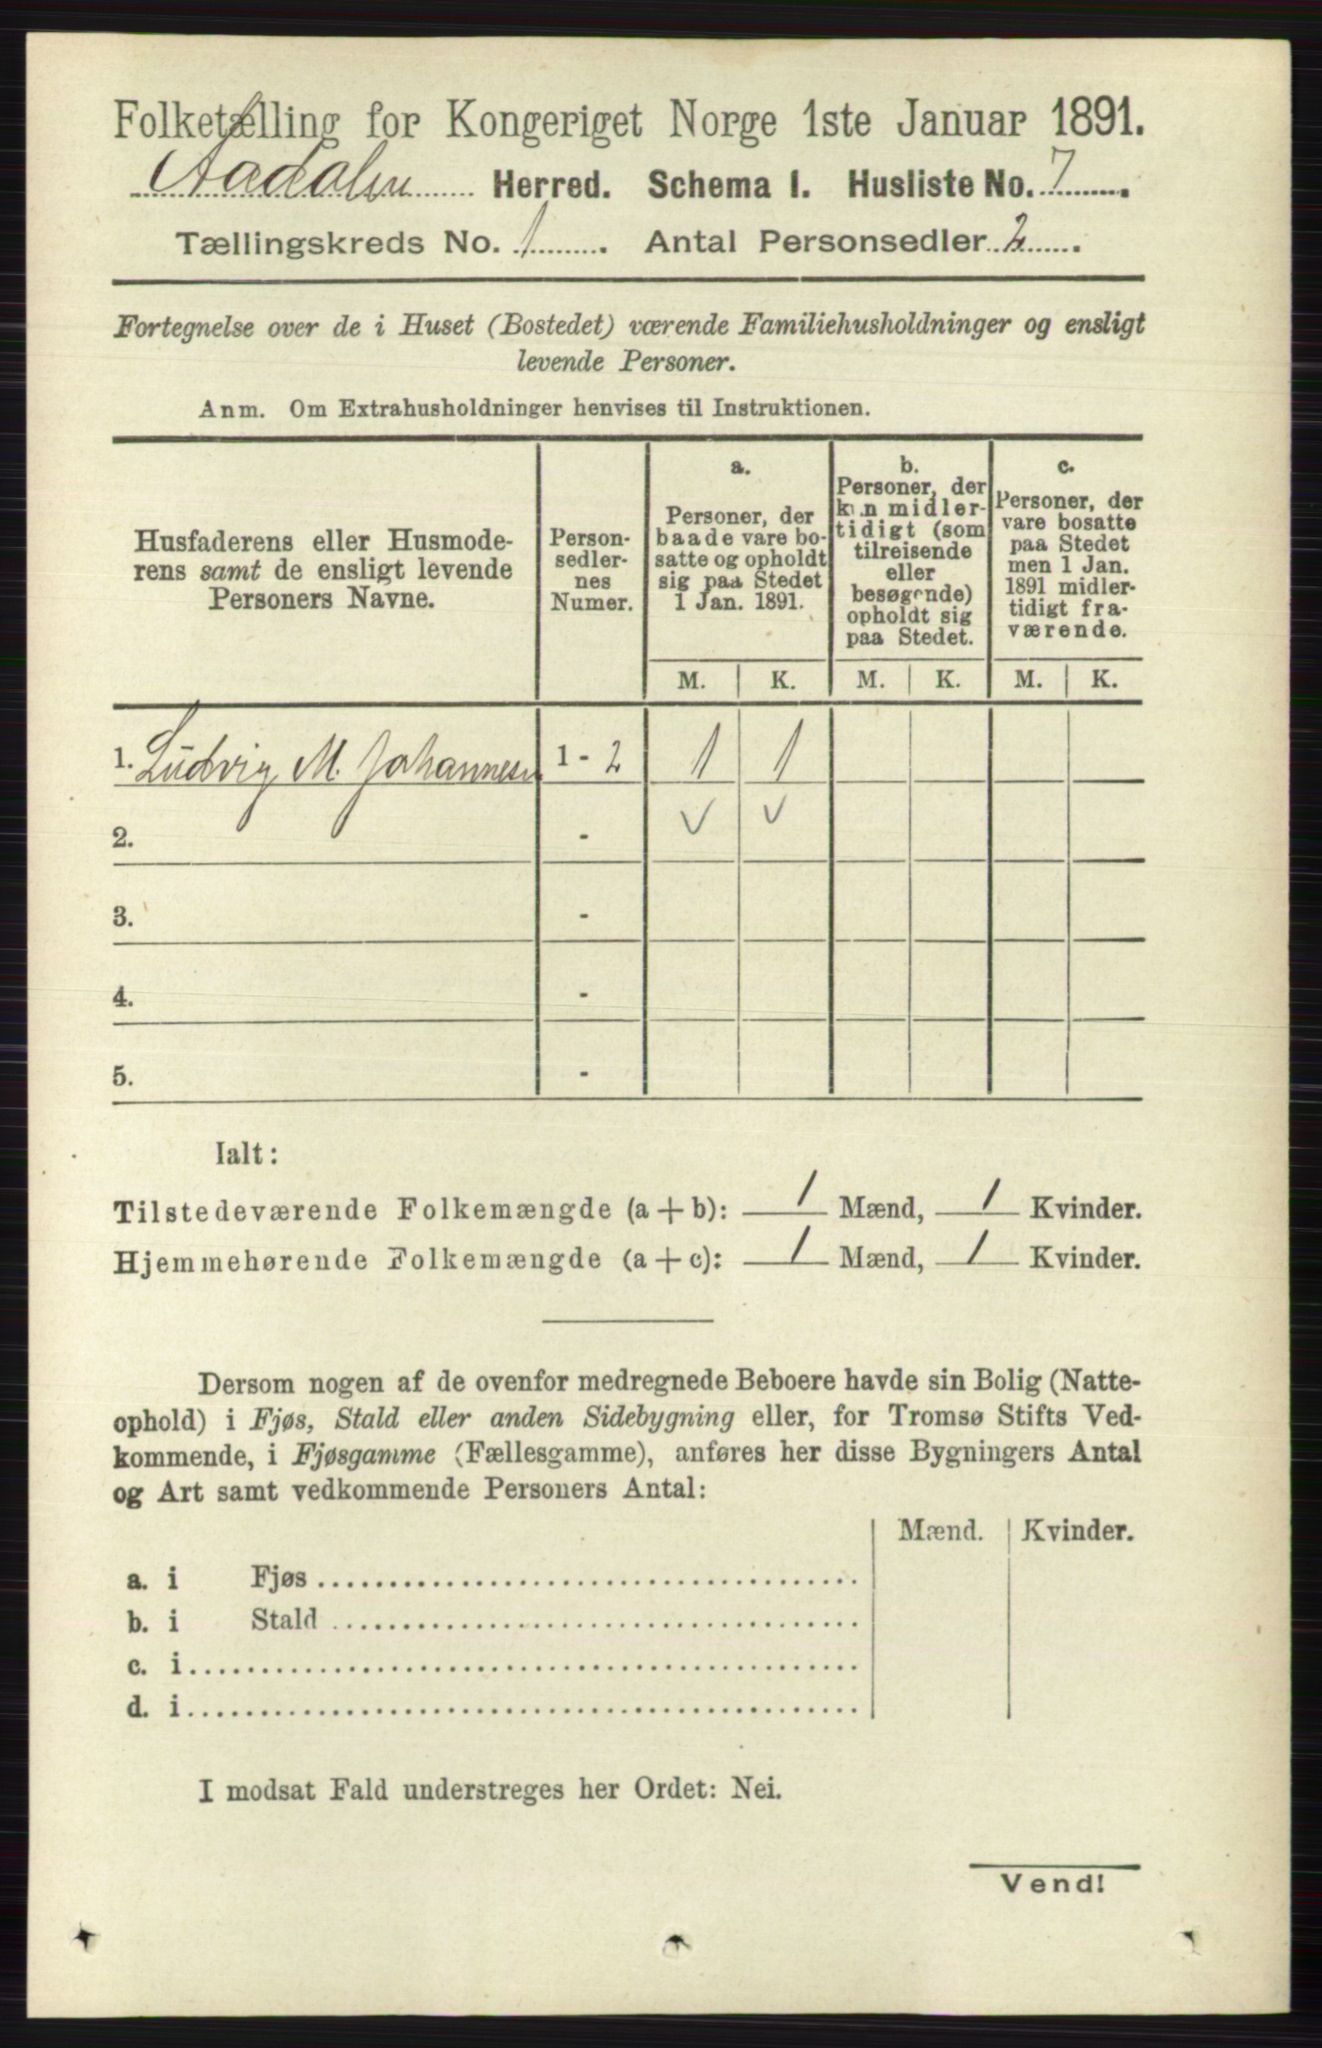 Folketælling for Kongeriget Norge 1ste Januar 1891.
Aadalen Herred. Schema I. Husliste No. 7.
Tællingskreds No. 1. Antal Personsedler 2.
Fortegnelse over de i Huset (Bostedet) værende Familiehusholdninger og ensligt
levende Personer.
Anm. Om Extrahusholdninger henvises til Instruktionen.
Husfaderens eller Husmode-
rens samt de ensligt levende
Personers Navne.
Person-
sedler-
nes
Numer.
a.
Personer, der
baade vare bo-
satte og opholdt
sig paa Stedet
1 Jan. 1891.
b.
Personer, der
kun midler-
tidigt (som
tilreisende
eller
besøgende)
opholdt sig
paa Stedet.
c.
Personer, der
vare bosatte
paa Stedet
men 1 Jan.
1891 midler-
tidigt fra-
værende.
M. K. M. K. M. K.
1. Ludvig M. Johannesen 1 - 2 1 1
2. - ✓ ✓
3. -
4. -
5. -
Ialt:
Tilstedeværende Folkemængde (a + b): 1 Mænd, 1 Kvinder.
Hjemmehørende Folkemængde (a + c): 1 Mænd, 1 Kvinder.
Dersom nogen af de ovenfor medregnede Beboere havde sin Bolig (Natte-
ophold) i Fjøs, Stald eller anden Sidebygning eller, for Tromsø Stifts Ved-
kommende, i Fjøsgamme (Fællesgamme), anføres her disse Bygningers Antal
og Art samt vedkommende Personers Antal:
Mænd. Kvinder.
a. i Fjøs
b. i Stald
c. i
d. i
I modsat Fald understreges her Ordet: Nei.
Vend!